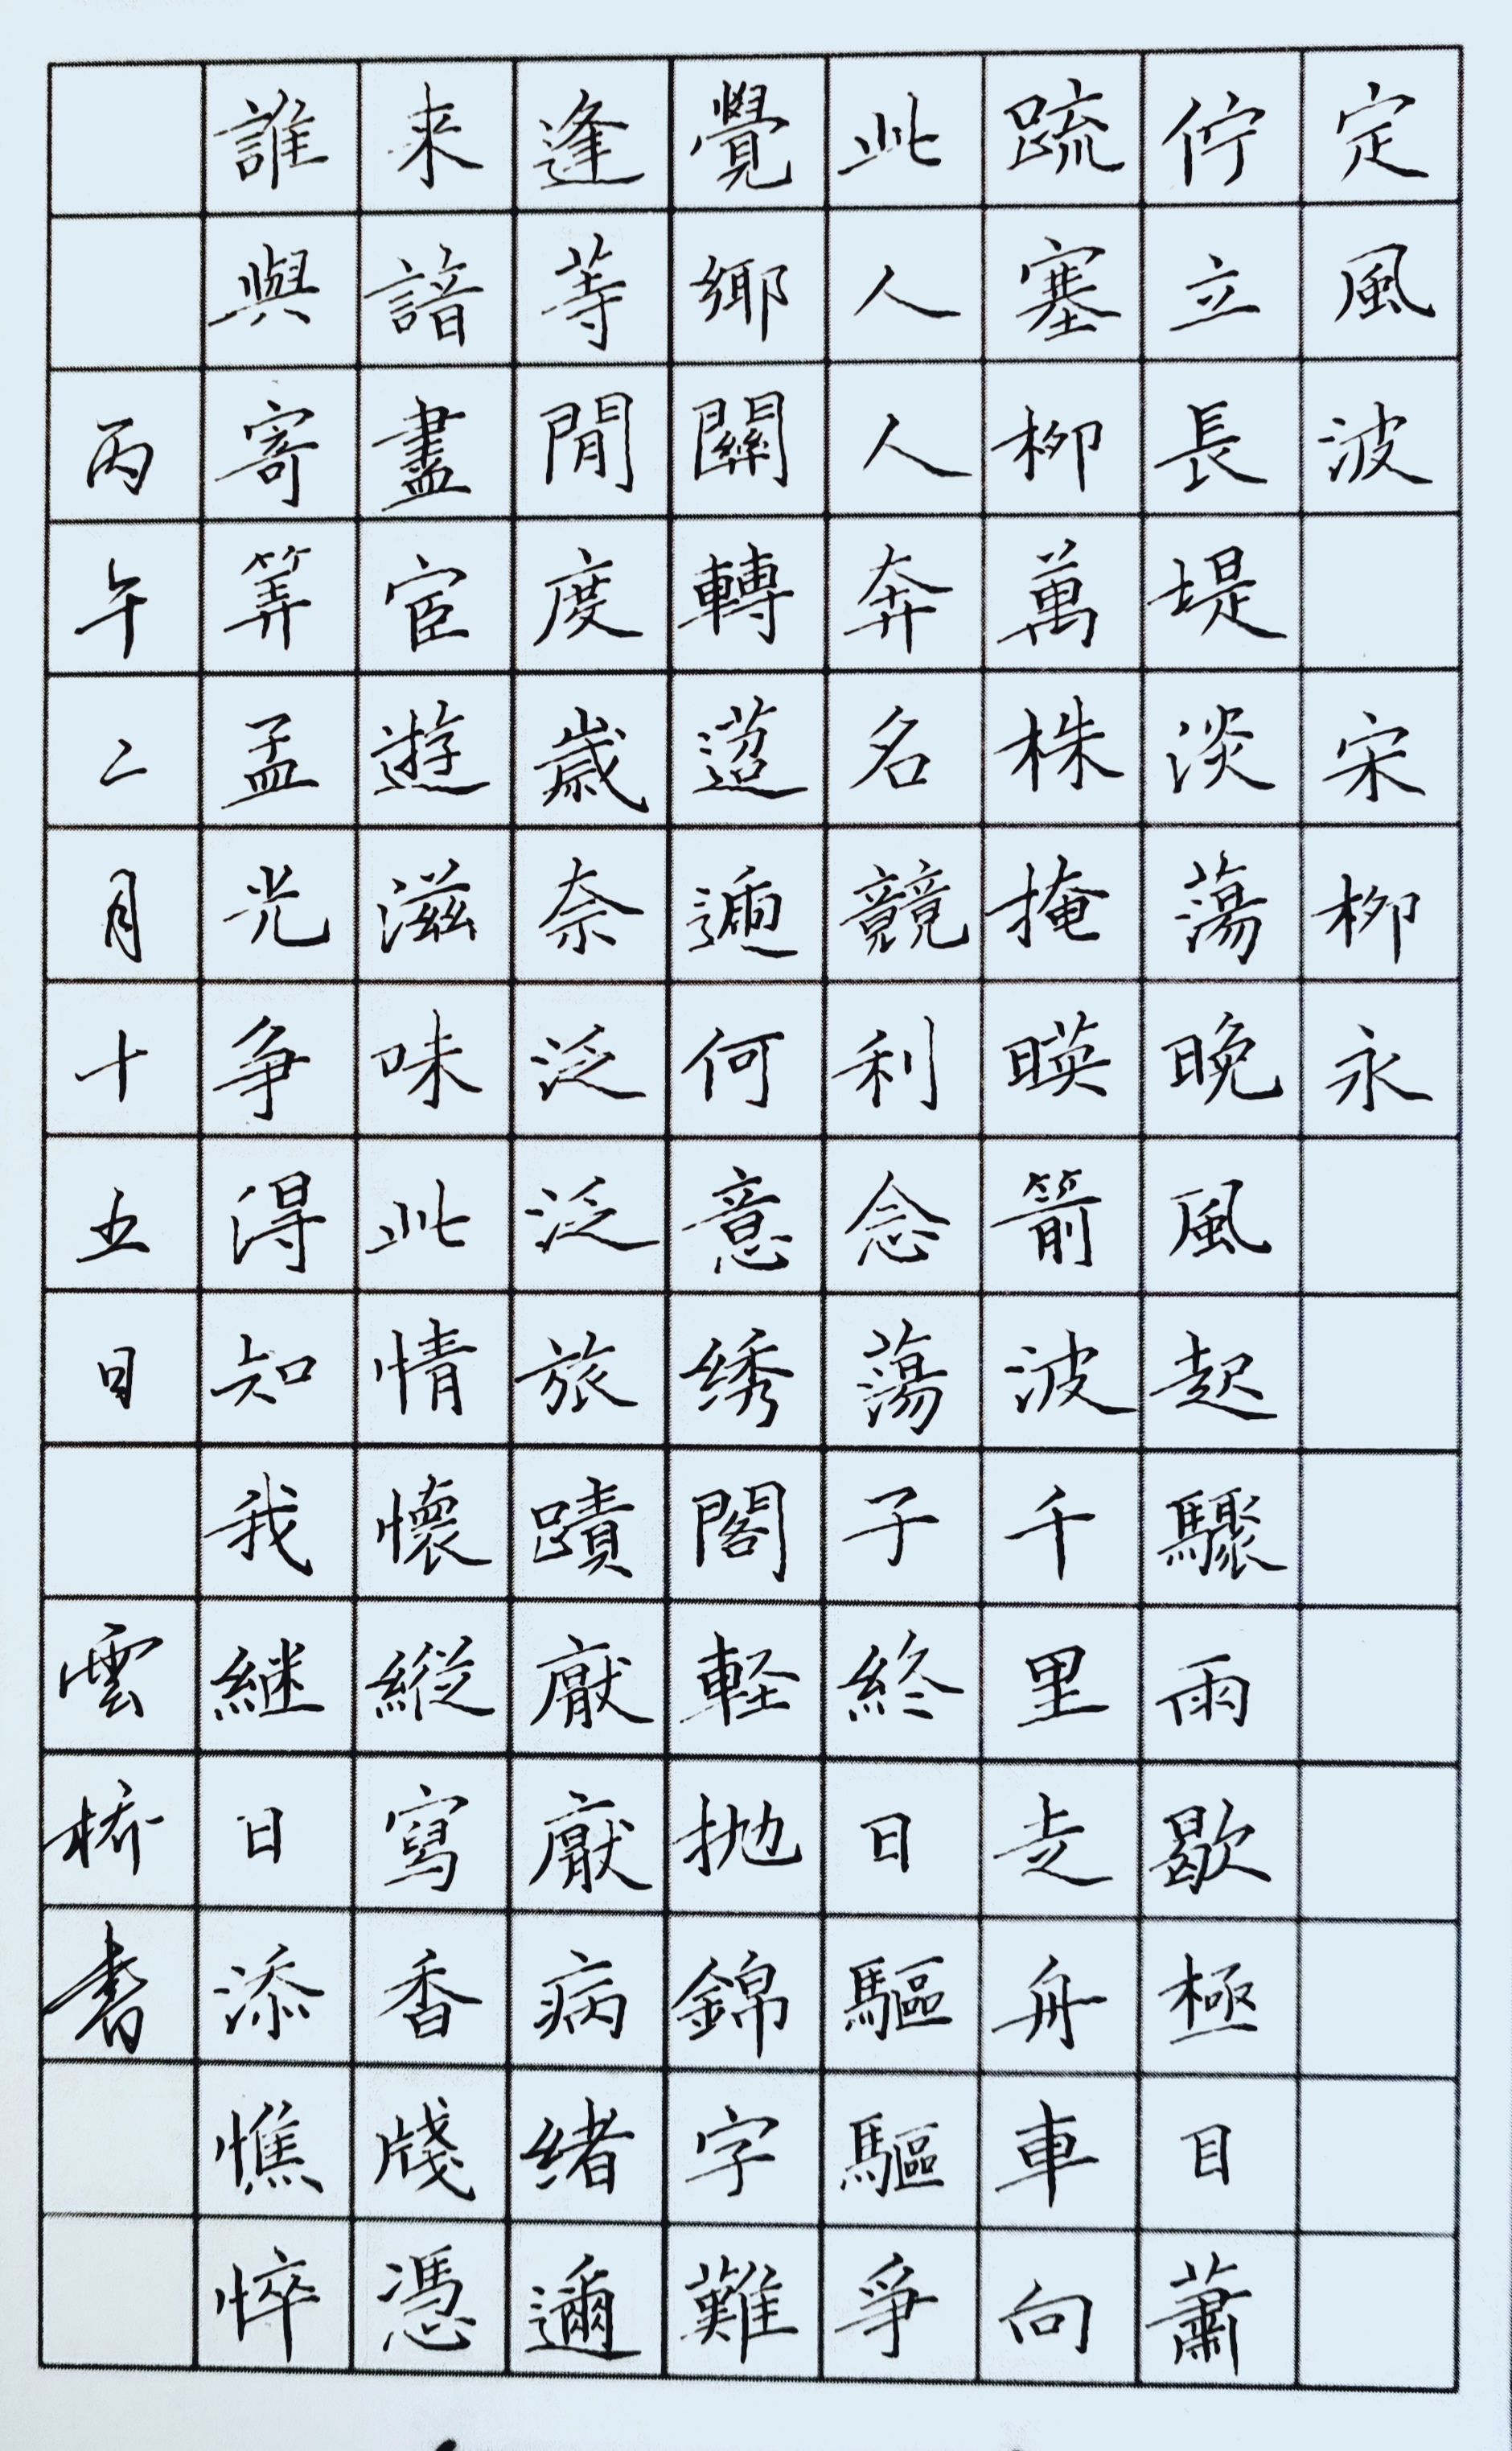 定風波 宋柳永
佇立長堤淡蕩晚風起驟雨歇極目蕭
䟽塞柳萬株掩暎箭波千里走舟車向
此人人奔名競利念蕩子終日驅驅爭
覺鄉關轉迢遞何意绣閣軽抛錦字難
逢等閒度歲奈泛泛旅蹟厭厭病緒邇
来諳盡宦遊滋味此情懷縱寫香牋憑
誰與寄算孟光争得知我継日添憔悴
丙午二月十五日 雲橋書